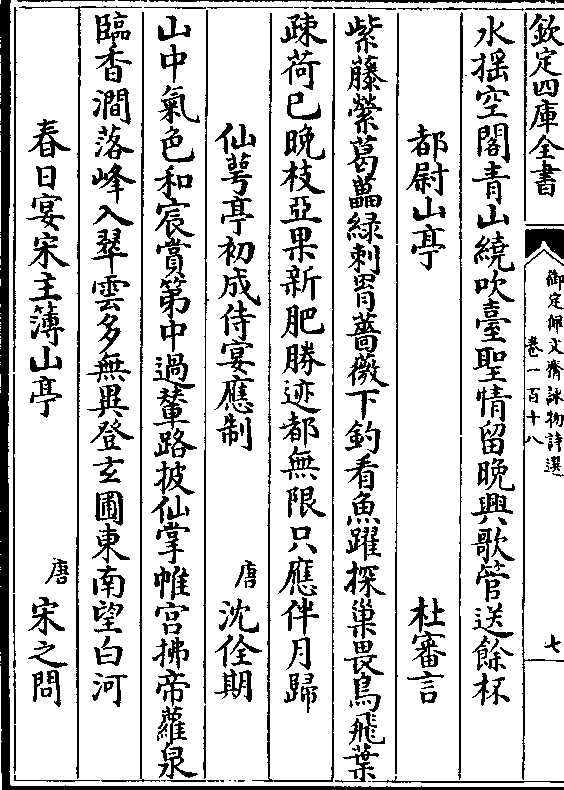 欽定四庫全書
御定佩文齋詠物詩選
卷一百十八
七
水揺空閣青山繞吹臺聖情留晚興歌管送餘杯
都尉山亭 杜審言
紫藤縈葛藟緑刺罥薔薇下釣看魚躍探巢畏鳥飛葉
疎荷已晚枝亞果新肥勝迹都無限只應伴月歸
仙萼亭初成侍宴應制 唐 沈佺期
山中氣色和宸賞第中過輦路披仙掌帷宫拂帝蘿泉
臨香澗落峰入翠雲多無異登玄圃東南望白河
春日宴宋主薄山亭 唐 宋之問